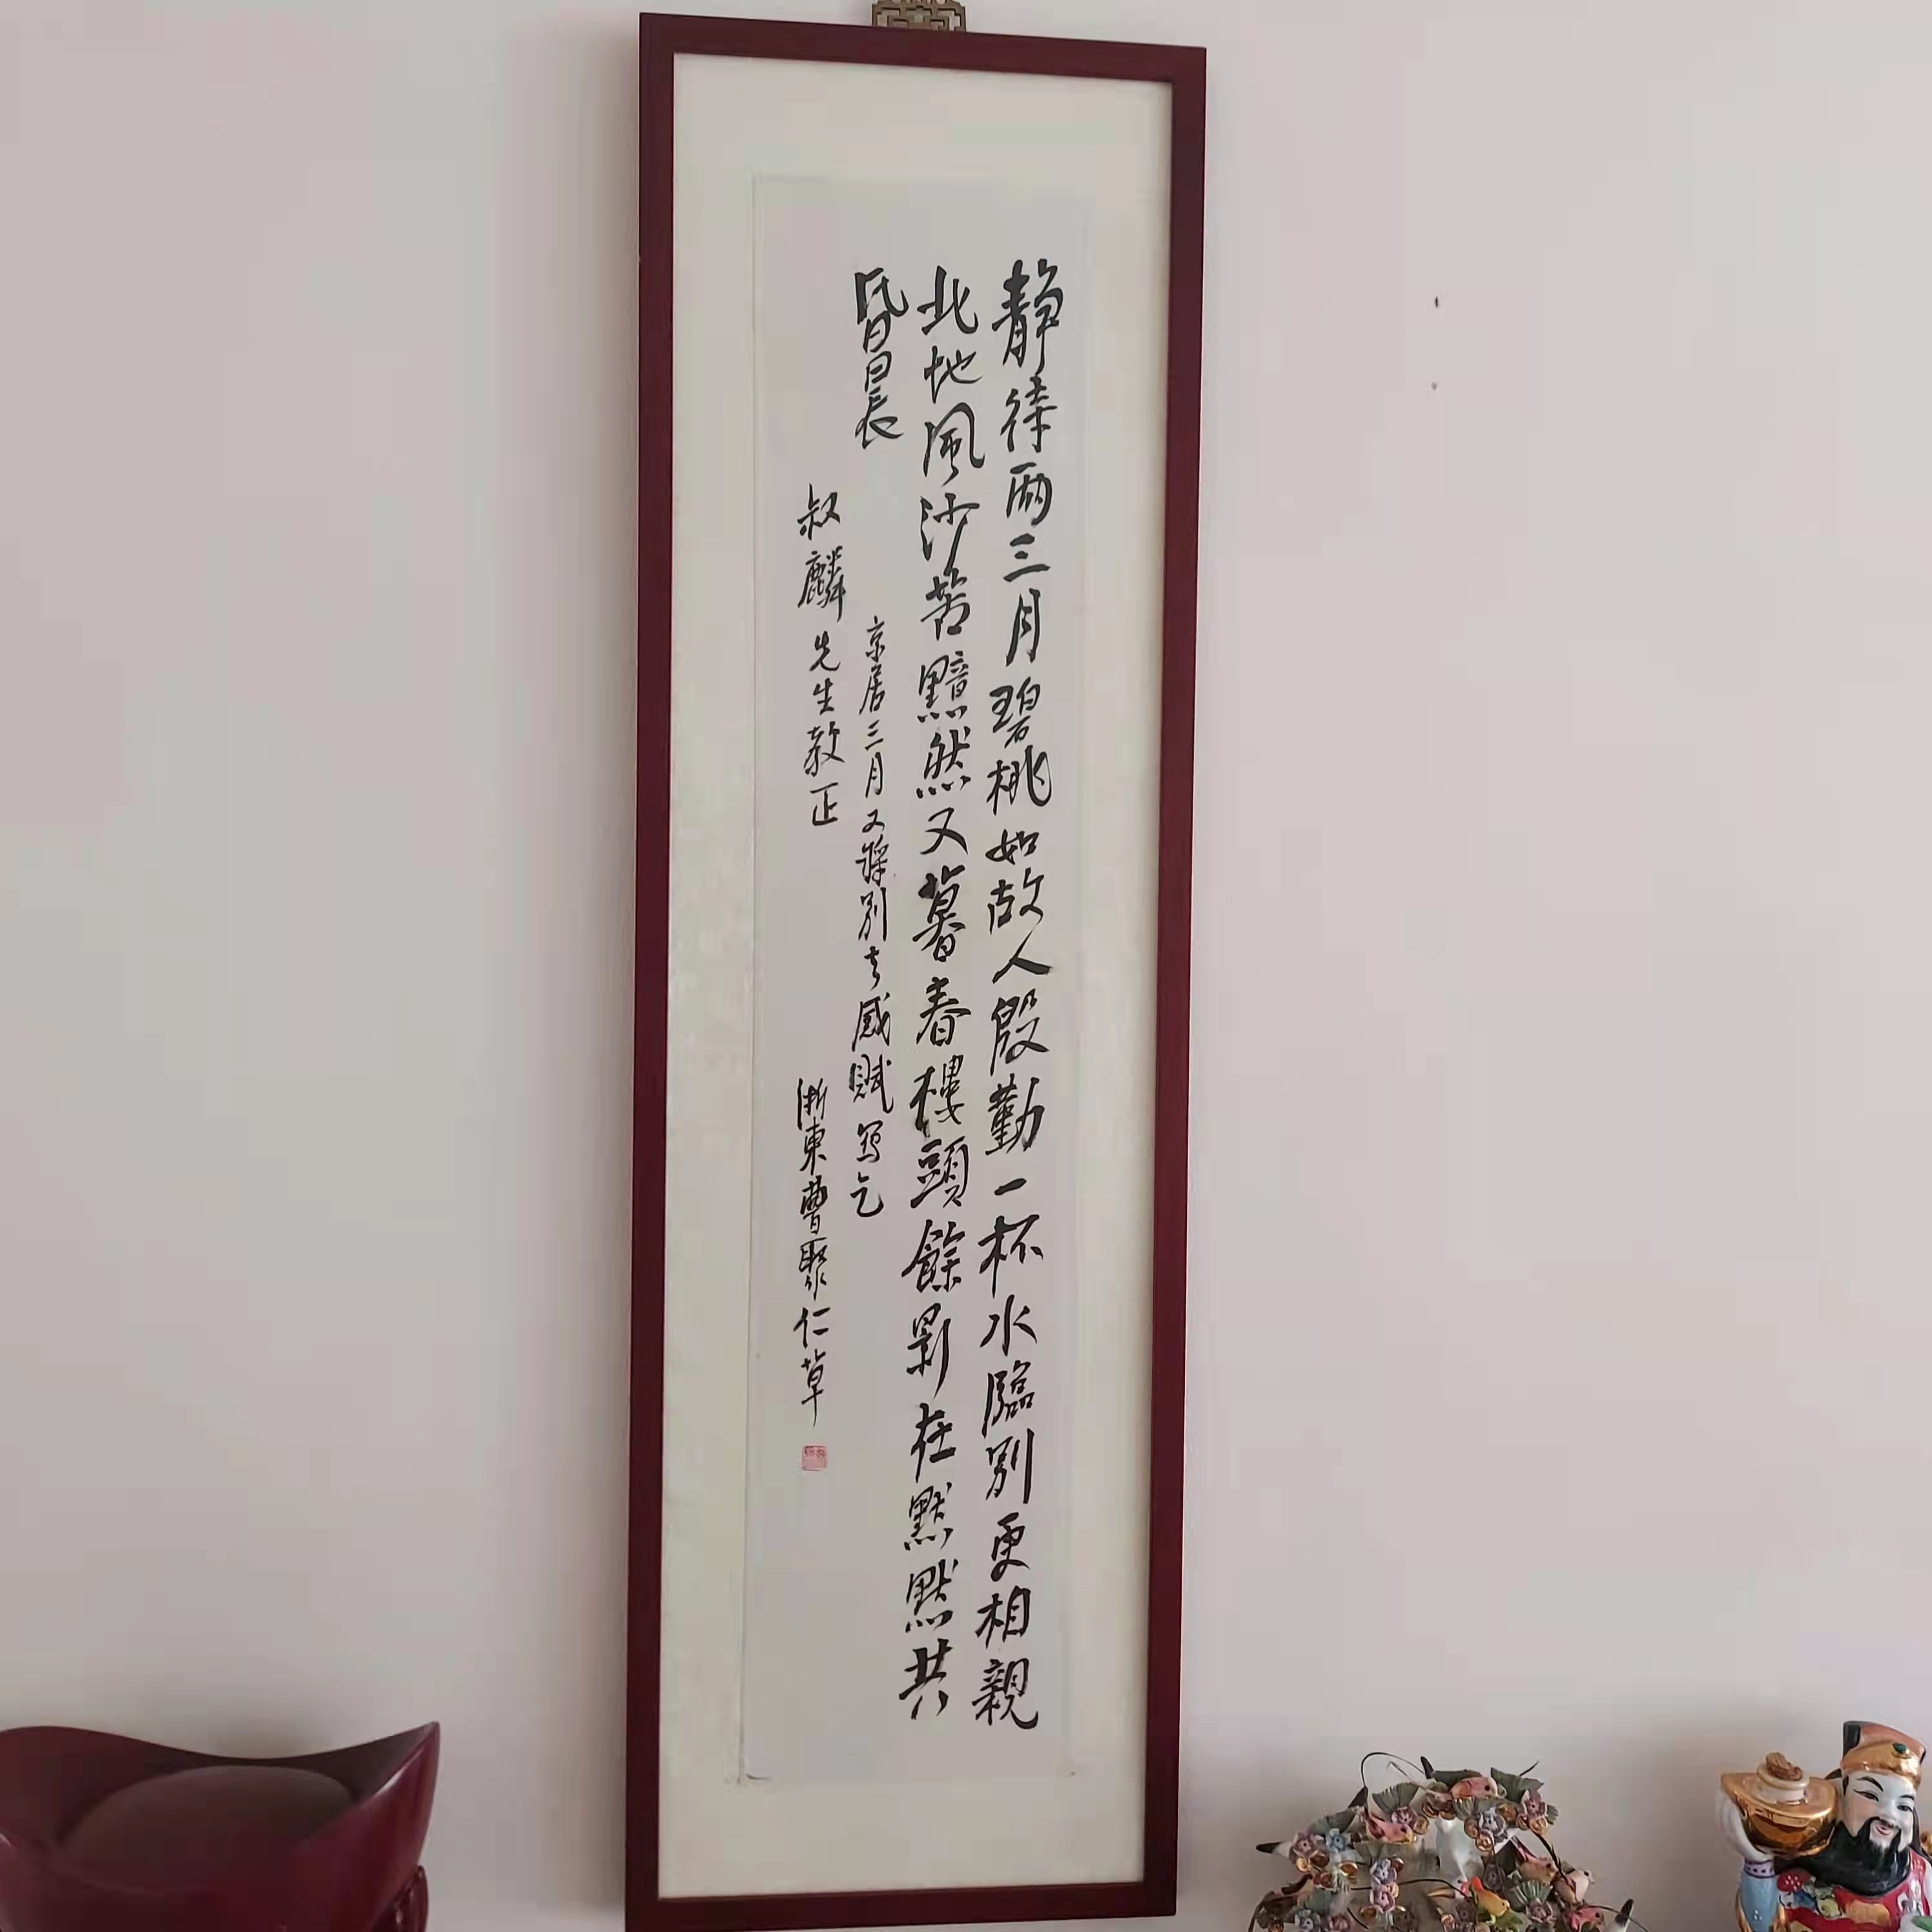 靜待兩三月碧桃如故人殷勤一杯水臨別更相親
北地風沙苦黯然又暮春樓頭餘影在默默共
昏晨
京居三月又將別去感賦寫乞
叔麟先生教正
浙東曹聚仁草